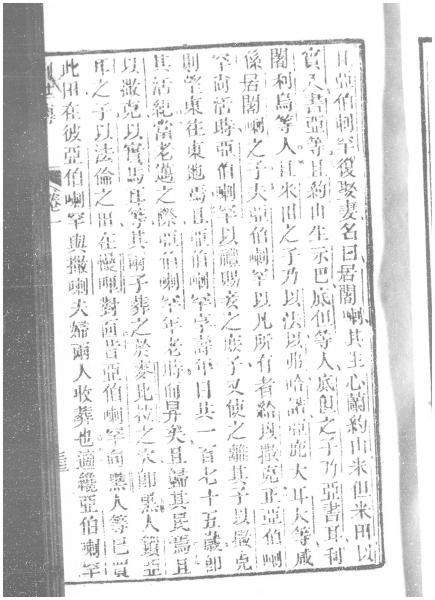 且亞伯喇罕復娶妻名曰居闊喇其生心蘭約山米但米田以
實入書亞等且約山生示巴底但等人底但之子乃亞書耳利
闊利烏等人且米田之子乃以法以弗哈諾亞庇大耳大等咸
係居闊喇之子夫亞伯喇罕以凡所有者給與撒克正亞伯喇
罕尚活時亞伯喇罕以禮賜妾之庶子又使之離其子以撒克
則望東往東地焉且亞伯喇罕享壽年日共一百七十五歲即
其活紀當老邁之際亞伯喇罕年老時而昇矣且歸其民焉且
以撒克以實馬耳等其兩子葬之於麥比拉之穴即黑人鎖亞
耳之子以法倫之田在慢喇對面昔亞伯喇罕向黑人等已買
此田在彼亞伯喇罕與撒喇夫婦兩人收葬也適纔亞伯喇罕
創世傳 卷一